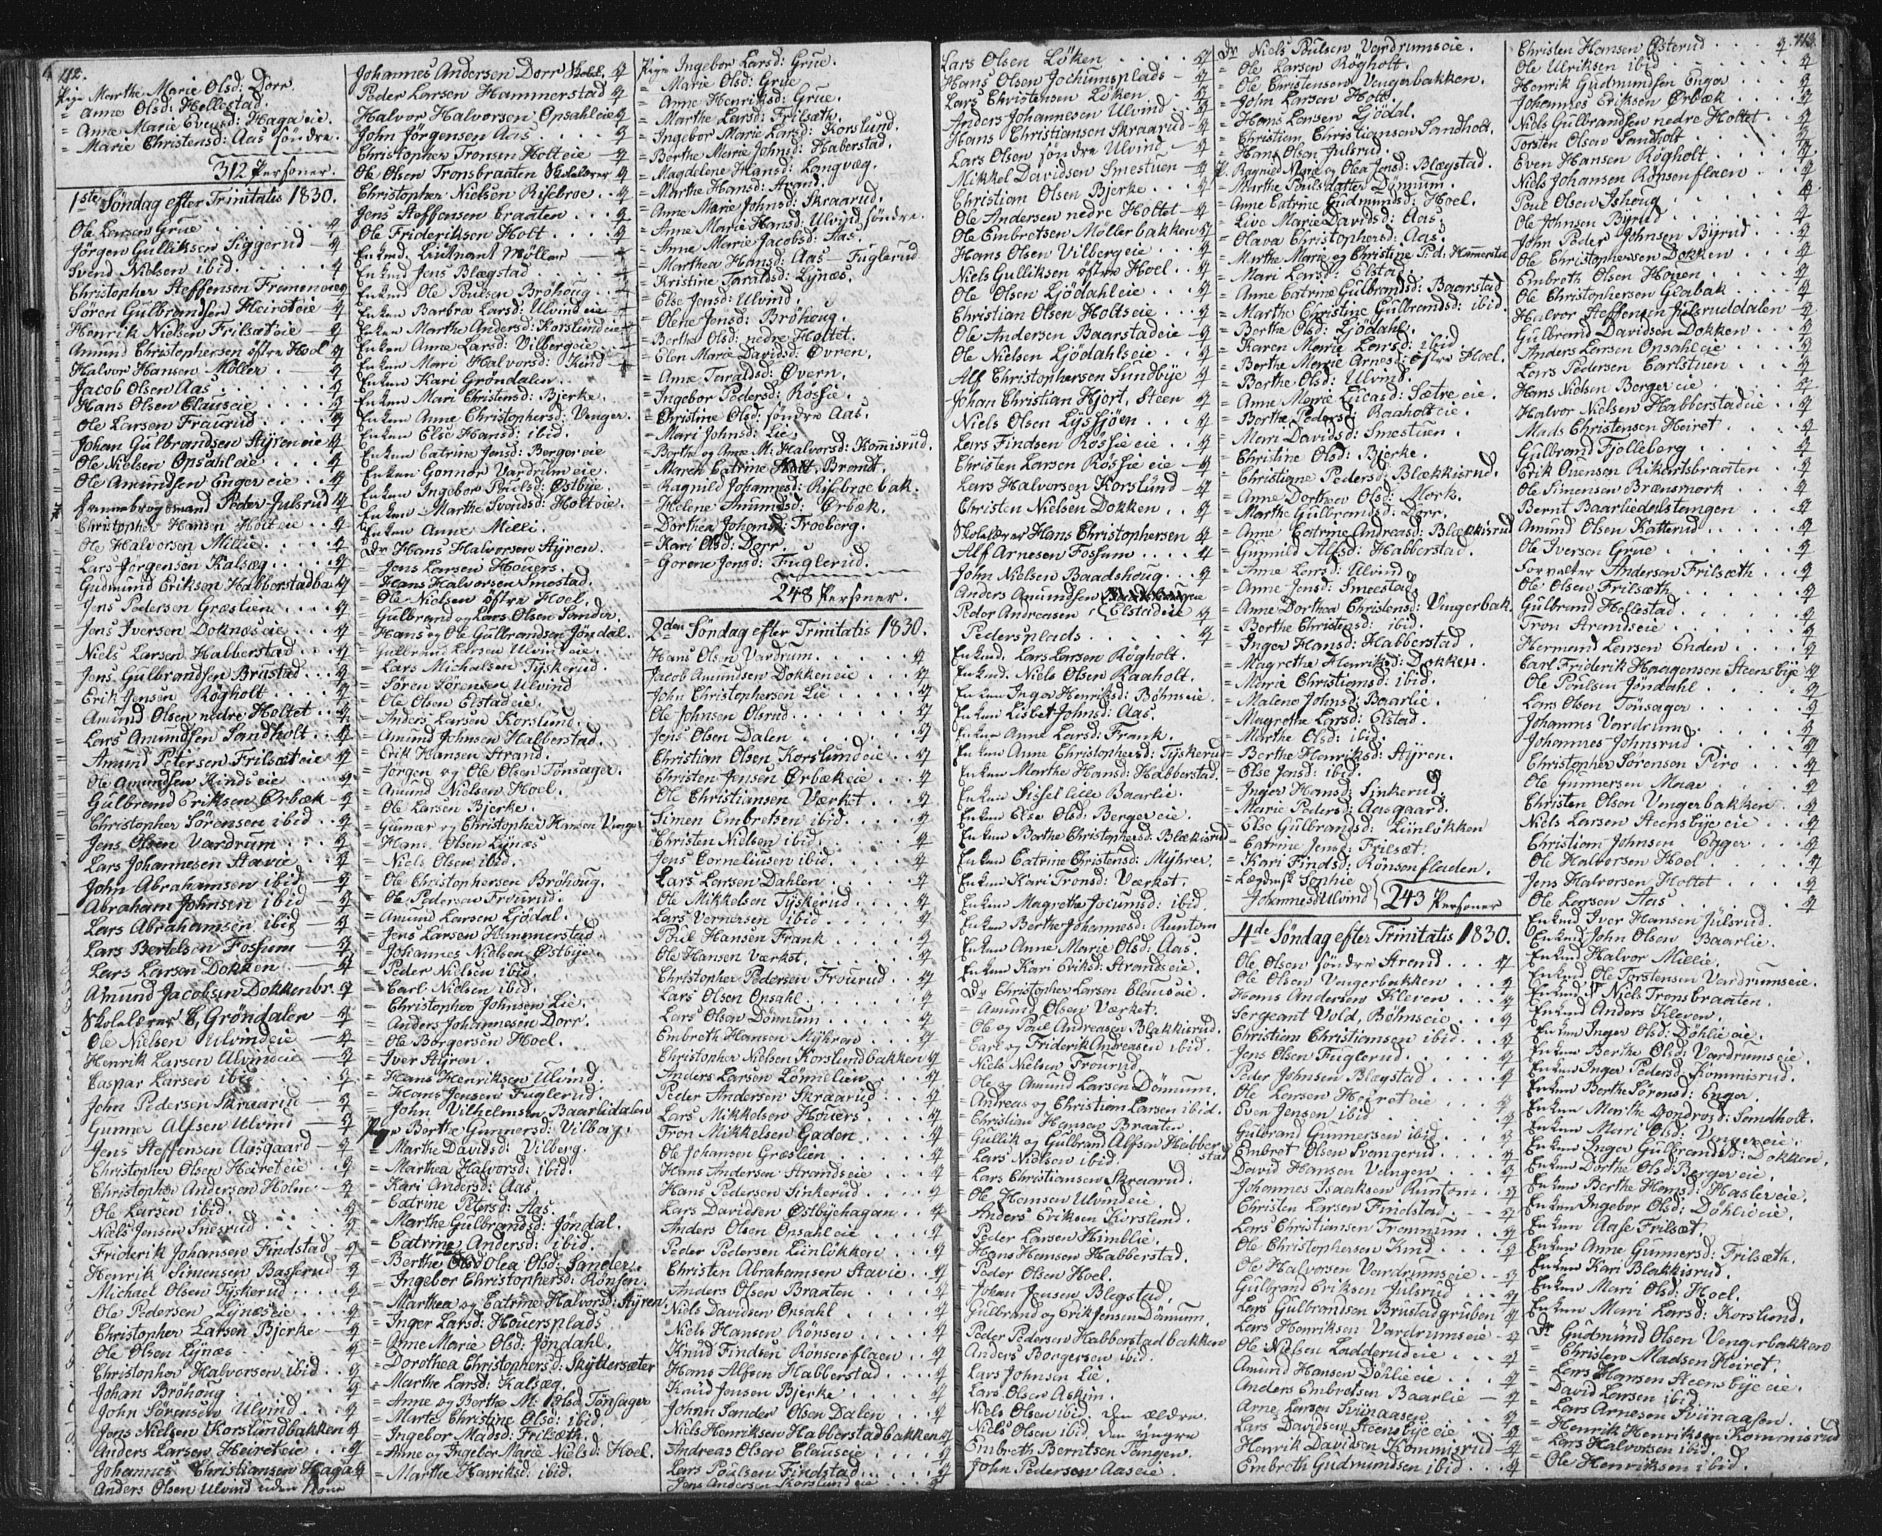 212.
Pige Marthe Marie Olsd: Dorr.
= Anne Olsd: Hellestad.
= Anne Marie Evensd: Hagaeie.
= Marie Christensd: Aas söndre.
312 Personer.
1ste Söndag efter Trinitatis 1830.
Ole Larsen Grue
Jörgen Gulliksen Siggerud
Svend Nielsen ibid.
Christopher Steffensen
Sören Gulbrandsen Heireteie
Henrik Nielsen Frilsæteie
Amund Christophersen östre Hoel
Halvor Hansen Möller
Jacob Olsen Aas
Hans Olsen Clauseie
Ole Larsen Fraurud
Johan Gulbrandsen Styreneie
Ole Nielsen Opsahleie
Ole Amundsen Engereie
Peder Julsrud
Christopher Hansen Holteie
Ole Halvorsen Millie
Lars Jörgensen Kalsæg
Gudmund Eriksen
Jens Pedersen Græslien
Jens Iversen Doknæseie
Niels Larsen Habberstad
Jens Gulbrandsen Brustad
Erik Jensen Rögholt
Amund Olsen nedre Holtet
Lars Amundsen Sandholt
Amund Petersen Frilsæteie
Ole Amundsen Kindseie
Gulbrand Eriksen Ørbæk
Christopher Sörensen ibid
Jens Olsen Vardrum
Lars Johannesen Stavie
John Abrahamsen ibid
Abraham Johnsen ibid
Lars Abrahamsen ibid
Lars Bertelsen Fossum
Lars Larsen Dokken
Amund Jacobsen Dokkenbr.
Skolelærer Gröndalen
Ole Nielsen Ulvindeie
Henrik Larsen Ulvindeie
Caspar Larsen ibid
John Pedersen Skraarud
Gunner Alfsen Ulvind
Jens Steffensen Aasgaard
Christopher Olsen Heireteie
Christopher Andersen Holm
Ole Larsen ibid.
Niels Jensen Snesrud
Friderik Johansen Findstad
Henrik Simensen Basserud
Michael Olsen Tyskerud
Ole Pedersen Lynæseie
Christopher Larsen Bjerke
Ole Olsen Lynæs
Christopher Halvorsen ibid
Johan Bröhoug
John Sörensen Ulvind
Jens Nielsen Korslundbakken
Anders Larsen Heireteie
Johannes Christiansen Haga
Anders Olsen Ulvind uden Kone
Johannes Andersen Dorr Skolel.
Peder Larsen Hammerstad
Halvor Halvorsen Opsahleie
John Jörgensen Aas
Christopher Tronsen Holteie
Ole Olsen Tronsbraaten Skolelærer
Christopher Nielsen Risebroe
Jens Steffensen braaten
Ole Frideriksen Holt
Enkmd. Lieutnant Möller
Enkmd Jens Blægstad
Enkmd Ole Poulsen Bröhoug
Enken Barbra Larsd: Ulvindeie
Enken Marthe Andersd: Korslundeie
Enken Anne Larsd: Vilbergeie
Enken Mari Halvorsd: Kind
Enken Kari Gröndalen
Enken Mari Christensd: Bjerke.
Enken Anne Christophersd: Venger.
Enken Else Hansd: ibid.
Enken Catrine Jensd: Bergereie
Enken Gonnor Vardrumeie.
Enken Ingebor Poulsd: Østbye
Enken Marthe Svendsd: Holteie.
Enken Anne Milli.
Dr Hans Halvorsen Styren.
= Jens Larsen Houers.
= Hans Halvorsen Smestad.
= Ole Nielsen östre Hoel.
= Gulbrand og Lars Olsen Sander
= Hans og Ole Gulbrandsen Jöndal.
= Gulbrand Larsen Ulvindeie.
= Lars Michelsen Tyskerud.
= Sören Sörensen Ulvind
= Ole Olsen Elstadeie.
= Anders Larsen Korslund.
= Amund Johnsen Habberstad.
= Erik Hansen Strand.
= Jörgen og Ole Olsen Tönsager.
= Amund Nielsen Hoel.
= Ole Larsen Bjerke.
= Gunner og Christopher Hansen Venger
= Hans Olsen Lynæs
= Niels Olsen ibid.
= Ole Christophersen Bröhoug.
= Ole Pedersen Frourud.
= Amund Larsen Ljödal.
= Jens Larsen Hammerstad.
= Johannes Nielsen Østbye.
= Peder Nielsen ibid
= Carl Nielsen ibid.
= Christopher Johnsen Lie.
= Anders Johannesen Dorr.
= Ole Borgersen Hoel.
= Iver Styren.
= Hans Henriksen Ulvind.
= Hans Jensen Fuglerud.
= John Vilhelmsen Baarlidalen
Pige Berthe Gunnersd: Vilberg.
= Marthe Davidsd: Vilberg.
= Marthea Halvorsd: ibid.
= Kari Andersd: Aas.
= Catrine Petersd: Aas.
= Marthe Gulbrandsd: Jöndal.
= Catrine Andersd: ibid.
= Berthe Olsd Olea Olsd: Sander.
= Ingebor Christophersd: Rönsen.
= Marthea og Catrine Halvorsd: Styren.
= Inger Larsd: Houersplads
= Anne Marie Olsd: Jöndahl.
= Dorothea Christophersd: Skyttersæter
= Marthe Larsd: Kalsæg.
= Anne og Berthe M: Olsd Tönsager
= Marte Christine Olsd: ibid.
= Ingebor Madsd: Frilsæth.
= Anne og Ingebor Marie Nielsd: Hoel.
= Marthe Henriksd: ibid.
Pige Ingebor Larsd: Grue.
= Marie Olsd: Grue.
= Anne Henriksd: Grue.
= Marthe Larsd: Frilsæth.
= Ingebor Marie Larsd: Korslund.
= Berthe Marie Johnsd: Haberstad.
= Magdelene Hansd: Langvæg.
= Marthe Hansd: Strand.
= Anne Marie Johnsd: Skraarud.
= Anne Marie Hansd: Ulvind söndre.
= Anne Marie Jacobsd: Aas.
= Marthea Hansd: Aas Fuglerud
= Kristine Taralsd: Lynæs.
= Else Jensd: Ulvind.
= Olene Jensd: Bröhoug.
= Berthe Olsd: nedre Holtet.
= Elen Marie Davidsd: Øvren.
= Anne Taraldsd: Øvern.
= Ingebor Pedersd: Rössie.
= Christine Olsd: söndre Aas.
= Mari Johnsd: Lie
= Berthe og Anne M: Halvorsd: Komisrud.
= Maren Catrine Brandt.
= Ragnild Johannesd: Risebroebak.
= Helene Amundsd: Ørbæk.
= Dorthea Johansd: Froeberg.
= Kari Olsd: Dorr.
= Gorene Jensd: Fuglerud.
248 Personer.
2den Söndag efter Trinitatis 1830.
Hans Olsen Vardrum
Jacob Amundsen Dokkeneie
John Christophersen Lie
Ole Johnsen Olsrud
Jens Olsen Dalen
Christian Olsen Korslundeie
Christen Jensen Ørbækeie
Ole Christiansen Værket
Simen Embretsen ibid
Christen Nielsen ibid
Jens Corneliusen ibid
Lars Larsen Dahlen
Ole Mikkelsen Tyskerud
Lars Vernersen ibid
Poul Hansen Frank
Ole Hansen Værket.
Christopher Pedersen Frourud
Lars Olsen Opsahl
Lars Olsen Dönnum
Embreth Hansen Myhrer
Christopher Nielsen Korslundbakken
Anders Larsen Lömelien
Peder Andersen Skraarud
Lars Mikkelsen Houers
Tron Mikkelsen Gaden
Ole Johansen Græslien
Hans Andersen Strandseie
Hans Pedersen Sinkerud
Lars Davidsen Østbyehagan
Anders Olsen Onsahleie
Peder Pedersen Liinlökken
Christen Abrahamsen Stavie
Anders Olsen Braaten
Niels Davidsen Onsahl
Niels Hansen Rönsen
Knud Findsen Rönsenflaen
Hans Alfsen Habberstad
Knud Jensen Bjerke
Johan Sander Olsen Dalen
Niels Henriksen Habberstadbakken
Andreas Olsen Clauseie
Lars Poulsen Findstad
Jens Andersen Korslundeie
213.
Lars Olsen Löken
Hans Olsen Jochumsplads
Lars Christensen Löken
Anders Johannesen Ulvind
Hans Christiansen Skraarud
Lars Olsen söndre Ulvind
Mikkel Davidsen Smestuen
Christian Olsen Bjerke
Ole Andersen nedre Holtet
Ole Embretsen Möllerbakken
Hans Olsen Vilbergeie
Niels Gulliksen östre Hoel
Ole Olsen Ljödahleie
Christian Olsen Holtseie
Ole Andersen Baarstadeie
Ole Nielsen Ljödahlseie
Alf Christophersen Sundbye
Johan Christian Hjort, Steen
Niels Olsen Lyssjöen
Lars Findsen Rössieeie
Christen Larsen Rössieeie
Lars Halvorsen Korslund
Christen Nielsen Dokken
Skolelærer Hans Christophersen
Alf Arnesen Fossum
John Nielsen Baadshoug
Anders Amundsen
Peder Andreasen Elstadeie
Pedersplads
Enkmd. Lars Larsen Rögholt.
Enkmd: Niels Olsen Raaholt.
Enken Inger Henriksd: Böhnseie.
Enken Lisbet Johnsd: Aas.
Enken Anne Larsd: Frank.
Enken Anne Christophersd: Tyskerud
Enken Marthe Hansd: Habberstad.
Enken Sissel lille Baarlie.
Enken Else Olsd: Bergereie
Enken Berthe Christophersd: Blækisrud
Enken Catrine Christensd: Myhrer.
Enken Kari Tronsd: Værket.
Enken Magrethe Jocumsd: ibid.
Enken Berthe Johannesd: Runtom
Enken Anne Marie Olsd: Aas.
Enken Kari Eriksd: Strandseie.
Dr Christopher Larsen Clauseie.
= Amund Olsen Værket.
= Ole og Poul Andreasen Blakkisrud.
= Carl og Friderik Andreasen ibid.
= Niels Nielsen Frourud.
= Ole og Amund Larsen Dönnum.
= Andreas og Christian Larsen ibid.
= Christian Hansen Braaten
= Gullik og Gulbrand Alfsen Habberstad
= Lars Nielsen ibid.
= Lars Christiansen Skraarud.
= Ole Hansen Ulvindeie.
= Anders Eriksen Korslund.
= Peder Larsen Himblie.
= Hans Hansen Habberstad.
= Peder Olsen Hoel.
= Johan Jensen Blegstad.
= Gulbrand og Erik Jensen Dönnum.
= Peder Pedersen Habberstadbakken
= Anders Borgersen ibid.
= Lars Johnsen Lie.
= Lars Olsen Askim.
= Niels Olsen ibid. den ældre.
= Niels Olsen ibid. den yngre
= Embreth Berntsen Tangen.
= John Pedersen Aaseie.
Dr Niels Poulsen Vardrumseie.
= Ole Larsen Rögholt.
= Ole Christensen Vengerbakken.
= John Larsen Holt.
= Hans Larsen Ljödal.
= Christian Christiansen Sandholt.
= Hans Olsen Julsrud.
P. Ragned Marie og Olea Jensd: Blægstad.
= Marthe Poulsdatter Dönnum.
= Anne Catrine Gudmundsd: Hoel.
= Live Marie Davidsd: Aas.
= Olava Christophersd: Aas.
= Marthe Marie og Christine P.d: Hammerstad
= Mari Larsd: Elstad.
= Anne Catrine Gulbrandsd: Baarstad
= Marthe Christine Gulbrandsd: ibid.
= Berthe Olsd: Ljödahl.
= Karen Marie Larsd: ibid.
= Berthe Marie Arnesd: Østre Hoel.
= Berthe Olsd: Ulvind.
= Anne Marie Lucasd: Sætreeie.
= Berthe Pedersd: Raaholteie.
= Mari Davidsd: Smestuen.
= Christine Olsd: Bjerke.
= Christiane Pedersd: Blækkisrud.
= Anne Dorthea Olsd: Mork.
= Marthe Gulbrandsd: Dorr.
= Anne Catrine Andreasd: Blækkisrud
= Gunnild Alfsd: Habberstad.
= Anne Larsd: Ulvind
= Anne Jensd: Smestad
= Anne Dorthea Christensd: Vengerbak.
= Berthe Christensd: ibid.
= Inger Hansd: Habberstad.
= Magrethe Henriksd: Dokken.
= Marie Christiansd: ibid.
= Malene Johnsd: Baarlie.
= Magrethe Larsd: Elstad.
= Marthe Olsd: ibid.
= Berthe Henriksd: Styren.
= Else Jensd: ibid.
= Inger Hansd: Sinkerud.
= Marie Pedersd: Aasgaard.
= Else Gulbrandsd: Liinlökken
= Catrine Jensd: Frilsæt.
= Kari Findsd: Rönsenfladen.
= Sophie
Johannesd Ulvind 243 Personer
4de Söndag efter Trinitatis 1830.
Ole Olsen söndre Strand
Ole Olsen Vengerbakken
Hans Andersen Kleven
Sergeant Vold, Böhnseie
Christian Christiansen ibid
Jens Olsen Fuglerud
Peder Johnsen Blegstad
Ole Larsen Heireteie
Even Jensen ibid
Gulbrand Gunnersen ibid
Embret Olsen Svengerud
David Hansen Vengen
Johannes Isaaksen Runtom
Christen Larsen Findstad
Lars Christiansen Trannum
Ole Christophersen Kind
Ole Halvorsen Vardrumseie
Gulbrand Eriksen Julsrud
Lars Gulbrandsen Brustadgruben
Lars Henriksen Vardrumseie
Ole Nielsen Ladderudeie
Amund Hansen Döhlieeie
Anders Embretsen Baarlie
Arne Larsen Sviunaasen
Lars Davidsen Steensbyeeie
Henrik Davidsen Kommisrud
Embreth Gudmundsen ibid
Christen Hansen Østerud
Ole Ulriksen ibid
Henrik Gudmundsen Enger
Johannes Eriksen Ørbæk
Niels Gulbrandsen nedre Holtet
Torsten Olsen Sandholt
Even Hansen Rögholt
Niels Johansen Rönsenflaen
Poul Olsen Ishoug
Ole Johnsen Byrud
John Peder Johnsen Byrud
Ole Christophersen Dokken
Embreth Olsen Höien
Ole Christophersen Glabak
Halvor Steffensen Julsruddalen
Gulbrand Davidsen Dokken
Anders Larsen Opsahleie
Lars Pedersen Carlstuen
Hans Nielsen Bergereie
Halvor Nielsen Habberstadeie
Mads Christensen Heiret
Gulbrand Fjelleberg
Erik Ovensen Rikertsbraaten
Ole Simensen Brænsmork
Bernt Baarliedalstangen
Amund Olsen Katterud
Ole Iversen Grue
Forvalter Andersen Frilsæth
Ole Olsen Frilsæth
Gulbrand Hellestad
Tron Strandseie
Hermand Larsen Enden
Carl Friderik Haagensen Steensbye
Ole Poulsen Jöndahl
Lars Olsen Tönsager
Johannes Vardrum
Johannes Johnsrud
Christopher Sörensen Piro
Ole Gunnersen Maae
Christen Olsen Vengerbakken
Niels Larsen Steensbyeeie
Christian Johnsen Egger
Ole Halvorsen Hoel
Jens Halvorsen Holtet
Ole Larsen Aas
Enkmd Iver Hansen Julsrud.
Enkmd John Olsen Baarlie.
Enkmd Halvor Millie.
Enkmd Ole Torstensen Vardrumseie.
Enkmd Niels Tronsbraaten.
Enkmd Anders Kleven.
Enken Inger Olsd: Döhlieeie.
Enken Berthe Olsd: Vardrumseie.
Enken Inger Pedersd: Kommisrud.
Enken Berthe Sörensd: Enger.
Enken Marthe Gondrosd: Sandholt.
Enken Mari Olsd: Vengereie.
Enken Inger Gulbrandsd: Dokken.
Enken Dorthe Olsd: Bergereie.
Enken Berthe Hansd: Hasleveie.
Enken Ingebor Olsd: Döhlieie.
Enken Aase Frilsæt.
Enken Anne Gunnersd: Frilsæth.
Enken Kari Blakkisrud.
Enken Mari Olsd: Hoel.
Enken Mari Larsd: Korslund.
Dr Gudmund Olsen Vengerbakken
= Christen Madsen Heiret.
= Lars Hansen Steensbyeeie.
= David Larsen ibid.
= Lars Arnesen Sviunaasen.
= Henrik Henriksen Kommisrud
= Lars Halvorsen ibid.
= Ole Henriksen ibid.